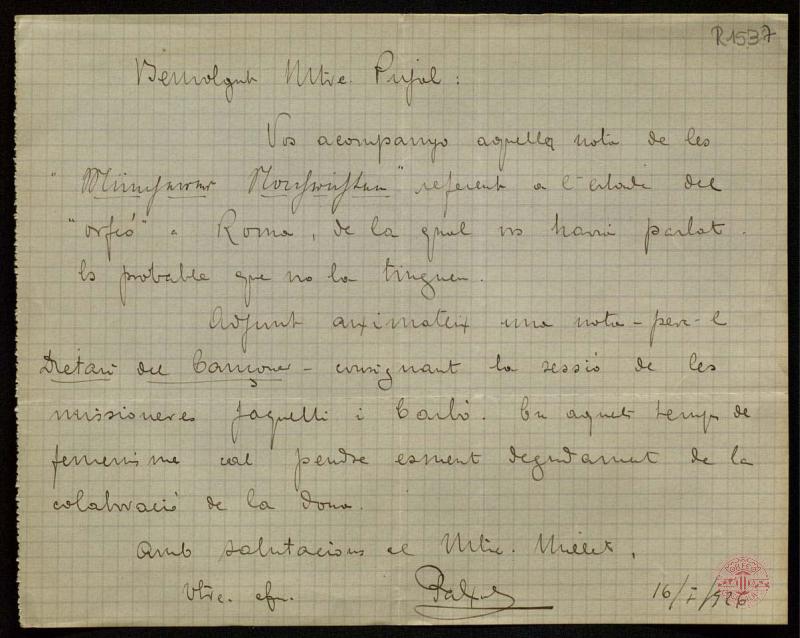 R1537
Benvolgut Mtre. Pujol :
Vos acompanyo aquella nota de les
"Münchener Nachrichten" referent a l'estada del
"orfeó" a Roma, de la qual vos havia parlat.
Es probable que no la tingueu.
Adjunt aximateix una nota - per-el
Dietari del Cançoner - consignant la sessió de les
missioneres Jaquetti i Carbó. En aquets temps de
femenisme cal pendre esment degudament de la
colaboració de la dona.
Amb salutacions al Mtre. Millet,
Vtre. afm.
16/I/926